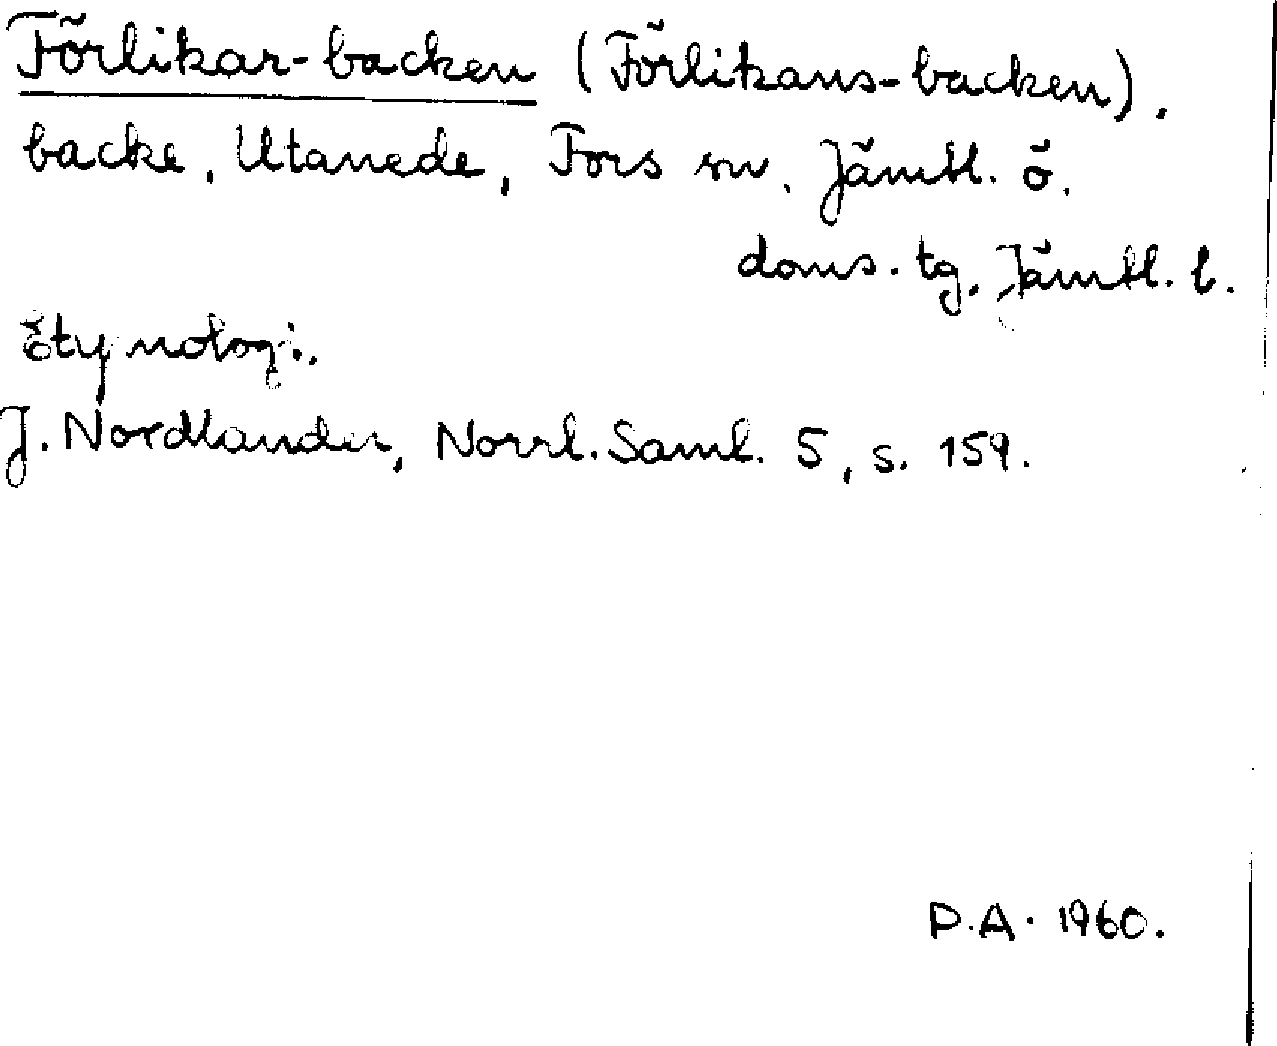 Förlikar-backen (Förlikans-backen).
backe, Utanede, Fors sn, Jämtl. ö.
doms. tg, Jämtl. l.
Etymologi.
J. Nordlander, Norrl. Saml. 5, s. 159.
D.A. 1960.